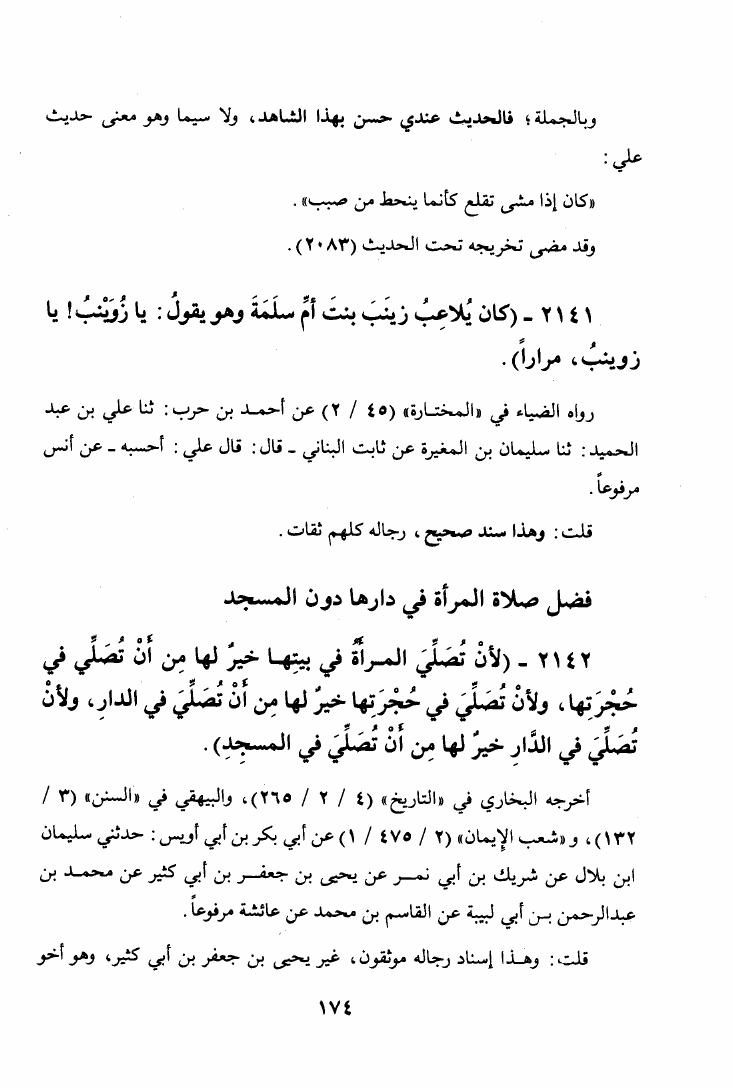 وبالجملة؛ فالحديث عندي حسن بهذا الشاهد، ولا سيما وهو معنى حديث
علي:
«كان إذا مشى تقلع كأنما ينحط من صبب».
وقد مضى تخريجه تحت الحديث (٢٠٨٣).
٢١٤١ ـ (كان يُلاعِبُ زينَبَ بنتَ أمِّ سلَمَةَ وهو يقولُ: يا زُوَيْنبُ! يا
زوينبُ، مراراً).
رواه الضياء في «المختـارة» (٤٥ / ٢) عن أحمـد بن حرب: ثنا علي بن عبد
الحميد: ثنا سليمان بن المغيرة عن ثابت البناني ـ قال: قال علي: أحسبه ـ عن أنس
مرفوعاً.
قلت: وهذا سند صحيح، رجاله كلهم ثقات.
فضل صلاة المرأة في دارها دون المسجد
٢١٤٢ ـ (لأنْ تُصَلِّيَ المـرأةُ في بيتِهـا خيرٌ لها مِن أَنْ تُصَلِّي في
حُجْرَتِها، ولأنْ تُصَلِّيَ في حُجْرَتِها خيرٌ لها مِن أَنْ تُصَلِّيَ في الدارِ، ولأنْ
تُصَلِّيَ في الدَّارِ خيرٌ لها مِن أَنْ تُصَلِّيَ في المسجِدِ).
أخرجه البخاري في «التاريخ» (٤ / ٢ / ٢٦٥)، والبيهقي في «السنن» (٣ /
١٣٢)، و «شعب الإيمان» (٢ / ٤٧٥ / ١) عن أبي بكر بن أبي أويس: حدثني سليمان
ابن بلال عن شريك بن أبي نمـر عن يحيى بن جعفـر بن أبي كثير عن محمـد بن
عبدالرحمن بـن أبي لبيبة عن القاسم بن محمد عن عائشة مرفوعاً.
قلت: وهـذا إسناد رجاله موثقون، غير يحيى بن جعفر بن أبي كثير، وهو أخو
١٧٤